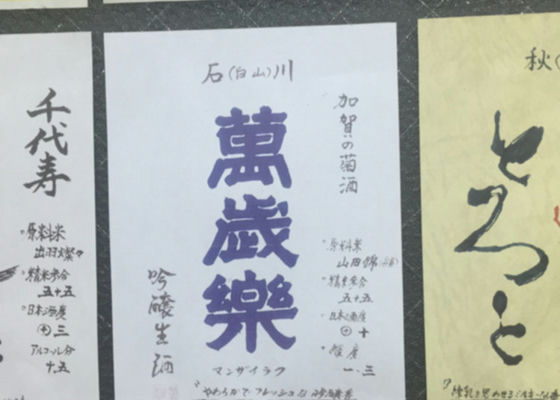 石(白山)川
加賀の菊酒
萬歳樂
吟醸生酒
マンザイラク
原料米
山田錦
精米歩合
五十五
日本酒度
⊕十
酸度
一.三
千代寿
原料米
出羽燦々
精米歩合
五十五
日本酒度
⊕三
アルコール分
十五
秋
とろっと